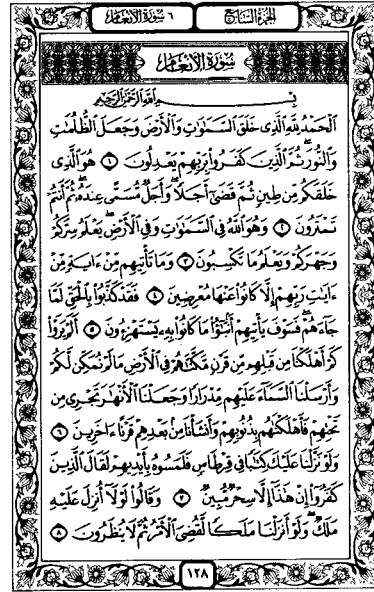 الجزء السابع
٦ سورة الأنعام
سورة الأنعام
بسم الله الرحمن الرحيم
ٱلۡحَمۡدُ لِلَّهِ ٱلَّذِى خَلَقَ ٱلسَّمَٰوَٰتِ وَٱلۡأَرۡضَ وَجَعَلَ ٱلظُّلُمَٰتِ
وَٱلنُّورَۖ ثُمَّ ٱلَّذِينَ كَفَرُواْ بِرَبِّهِمۡ يَعۡدِلُونَ ١ هُوَ ٱلَّذِى
خَلَقَكُم مِّن طِينٖ ثُمَّ قَضَىٰٓ أَجَلٗاۖ وَأَجَلٞ مُّسَمًّى عِندَهُۥۖ ثُمَّ أَنتُمۡ
تَمۡتَرُونَ ٢ وَهُوَ ٱللَّهُ فِى ٱلسَّمَٰوَٰتِ وَفِى ٱلۡأَرۡضِ يَعۡلَمُ سِرَّكُمۡ
وَجَهۡرَكُمۡ وَيَعۡلَمُ مَا تَكۡسِبُونَ ٣ وَمَا تَأۡتِيهِم مِّنۡ ءَايَةٖ مِّنۡ
ءَايَٰتِ رَبِّهِمۡ إِلَّا كَانُواْ عَنۡهَا مُعۡرِضِينَ ٤ فَقَدۡ كَذَّبُواْ بِٱلۡحَقِّ لَمَّا
جَآءَهُمۡ فَسَوۡفَ يَأۡتِيهِمۡ أَنۢبَٰٓؤُاْ مَا كَانُواْ بِهِۦ يَسۡتَهۡزِءُونَ ٥ أَلَمۡ يَرَوۡاْ
كَمۡ أَهۡلَكۡنَا مِن قَبۡلِهِم مِّن قَرۡنٖ مَّكَّنَّٰهُمۡ فِى ٱلۡأَرۡضِ مَا لَمۡ نُمَكِّن لَّكُمۡ
وَأَرۡسَلۡنَا ٱلسَّمَآءَ عَلَيۡهِم مِّدۡرَارٗا وَجَعَلۡنَا ٱلۡأَنۡهَٰرَ تَجۡرِى مِن
تَحۡتِهِمۡ فَأَهۡلَكۡنَٰهُم بِذُنُوبِهِمۡ وَأَنشَأۡنَا مِنۢ بَعۡدِهِمۡ قَرۡنًا ءَاخَرِينَ ٦
وَلَوۡ نَزَّلۡنَا عَلَيۡكَ كِتَٰبٗا فِى قِرۡطَاسٖ فَلَمَسُوهُ بِأَيۡدِيهِمۡ لَقَالَ ٱلَّذِينَ
كَفَرُوٓاْ إِنۡ هَٰذَآ إِلَّا سِحۡرٞ مُّبِينٞ ٧ وَقَالُواْ لَوۡلَآ أُنزِلَ عَلَيۡهِ
مَلَكٞۖ وَلَوۡ أَنزَلۡنَا مَلَكٗا لَّقُضِىَ ٱلۡأَمۡرُ ثُمَّ لَا يُنظَرُونَ ٨
١٢٨